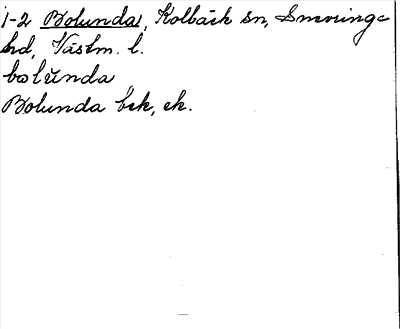 1-2 Bolunda, Kolbäck sn, Snevringe
hd, Västm. l.
bolŭnda
Bolunda bek, ek.